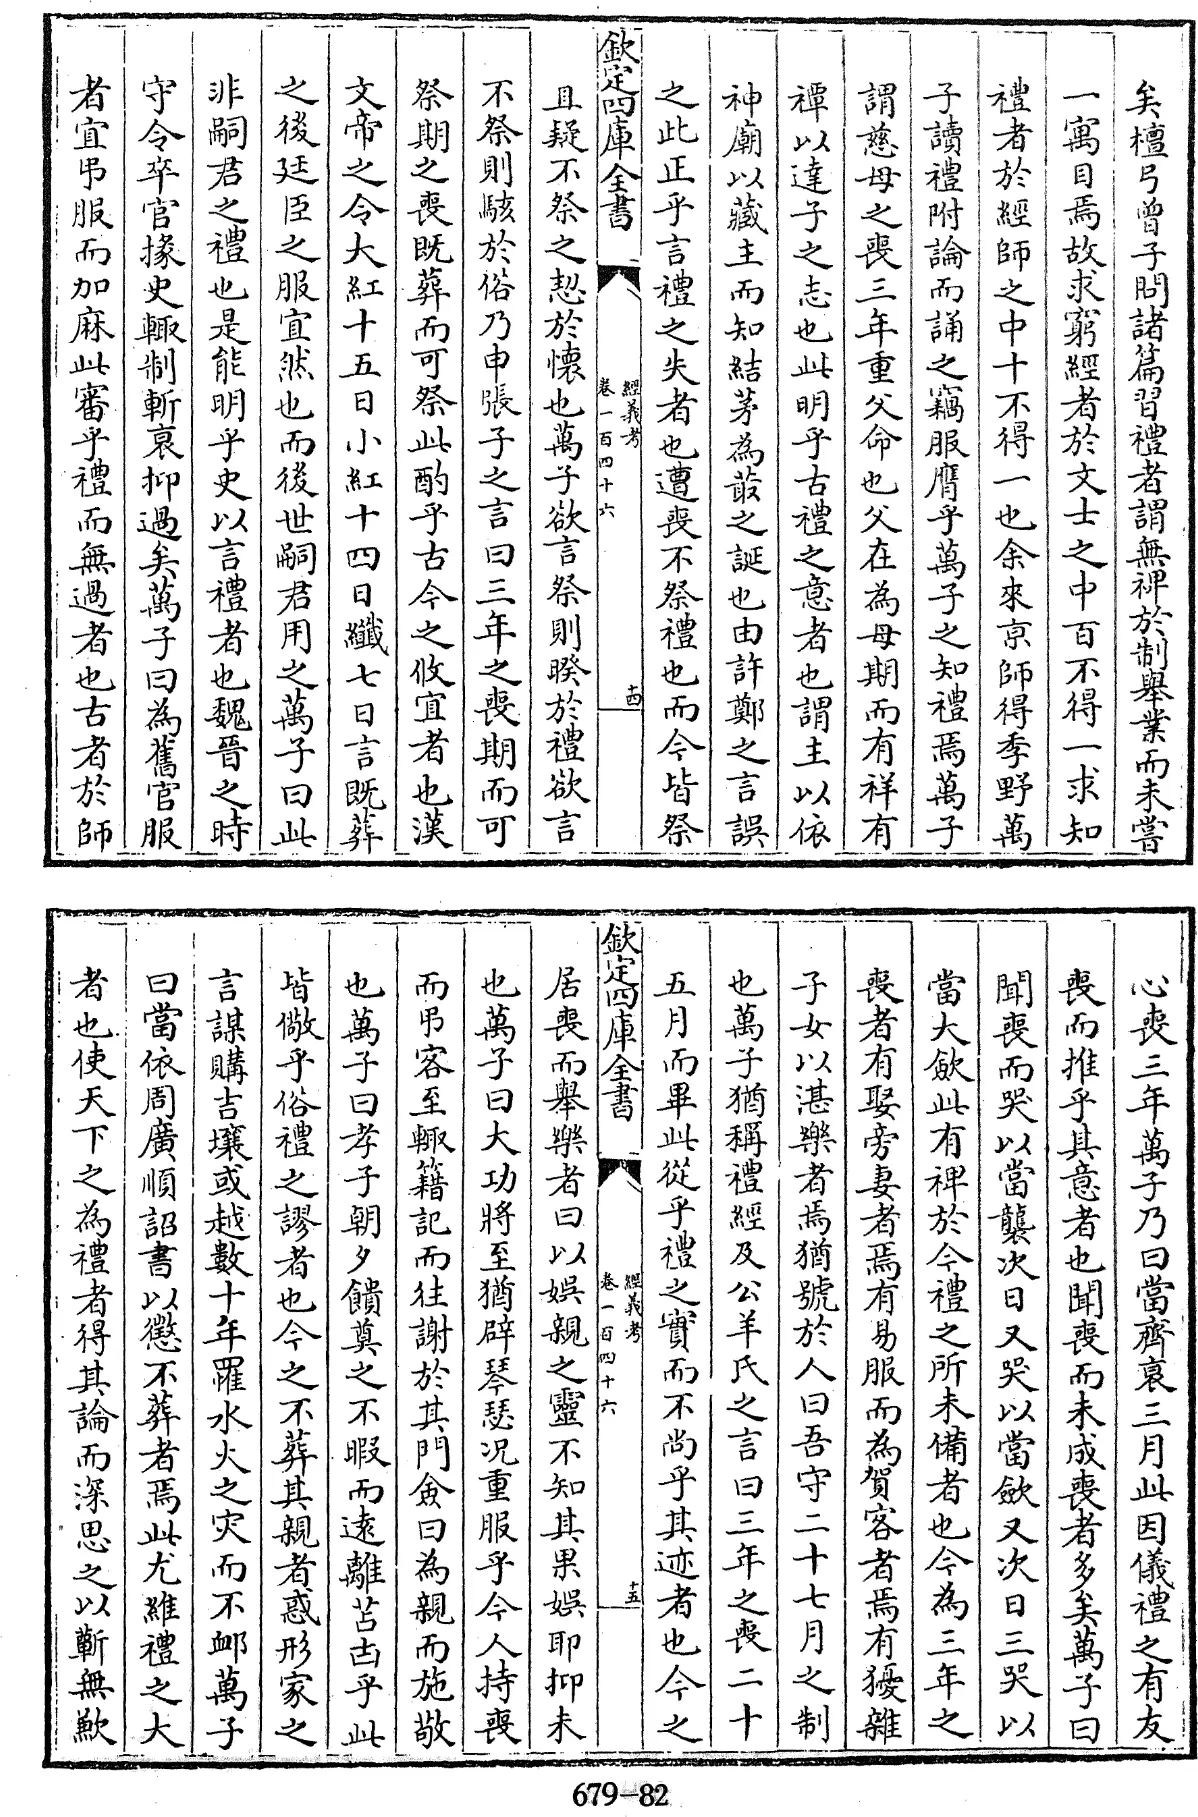 矣檀弓曾子問諸篇習禮者謂無裨於制舉業而未嘗
一寓目焉故求窮經者於文士之中百不得一求知
禮者於經師之中十不得一也余來京師得季野萬
子讀禮附論而誦之竊服膺乎萬子之知禮焉萬子
謂慈母之喪三年重父命也父在為母期而有祥有
禫以達子之志也此明乎古禮之意者也謂主以依
神廟以藏主而知結茅為菆之誕也由許鄭之言誤
之此正乎言禮之失者也遭喪不祭禮也而今皆祭
欽定四庫全書
經義考
卷一百四十六
十四
且疑不祭之恝於懷也萬子欲言祭則暌於禮欲言
不祭則駭於俗乃申張子之言曰三年之喪期而可
祭期之喪既葬而可祭此酌乎古今之攸宜者也漢
文帝之令大紅十五日小紅十四日纖七日言既葬
之後廷臣之服宜然也而後世嗣君用之萬子曰此
非嗣君之禮也是能明乎史以言禮者也魏晉之時
守令卒官掾史輙制斬哀抑過矣萬子曰為舊官服
者宜弔服而加麻此審乎禮而無過者也古者於師
心喪三年萬子乃曰當齊哀三月此因儀禮之有友
喪而推乎其意者也聞喪而未成喪者多矣萬子曰
聞喪而哭以當襲次日又哭以當斂又次日三哭以
當大斂此有裨於今禮之所未備者也今為三年之
喪者有娶旁妻者焉有易服而為賀客者焉有獶雜
子女以湛樂者焉猶號於人曰吾守二十七月之制
也萬子猶稱禮經及公羊氏之言曰三年之喪二十
五月而畢此從乎禮之實而不尚乎其迹者也今之
欽定四庫全書
經義考
卷一百四十六
十五
居喪而舉樂者曰以娛親之靈不知其果娛耶抑未
也萬子曰大功將至猶辟琴瑟况重服乎今人持喪
而弔客至輙籍記而往謝於其門僉曰為親而施敬
也萬子曰孝子朝夕饋奠之不暇而遠離苫凷乎此
皆儆乎俗禮之謬者也今之不葬其親者惑形家之
言謀購吉壤或越數十年罹水火之灾而不䘏萬子
曰當依周廣順詔書以懲不葬者焉此尤維禮之大
者也使天下之為禮者得其論而深思之以蘄無歉
679-82